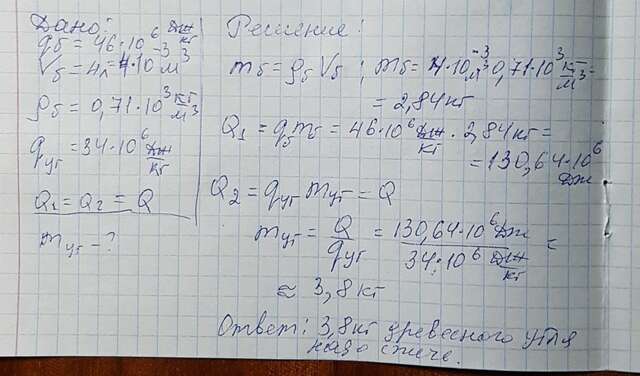 Дано:
qб = 46·10⁶ Дж/кг
Vб = 4л = 4·10⁻³ м³
ρб = 0,71·10³ кг/м³
qуг = 34·10⁶ Дж/кг
Q₁ = Q₂ = Q
mуг - ?
Решение:
mб = ρб Vб ; mб = 4·10⁻³ м³ 0,71·10³ кг/м³ =
= 2,84 кг
Q₁ = qб mб = 46·10⁶ Дж/кг · 2,84 кг =
= 130,64·10⁶ Дж.
Q₂ = qуг mуг = Q
mуг = Q/qуг = 130,64·10⁶ Дж / 34·10⁶ Дж/кг =
≈ 3,8 кг
Ответ: 3,8 кг древесного угля
надо сжечь.